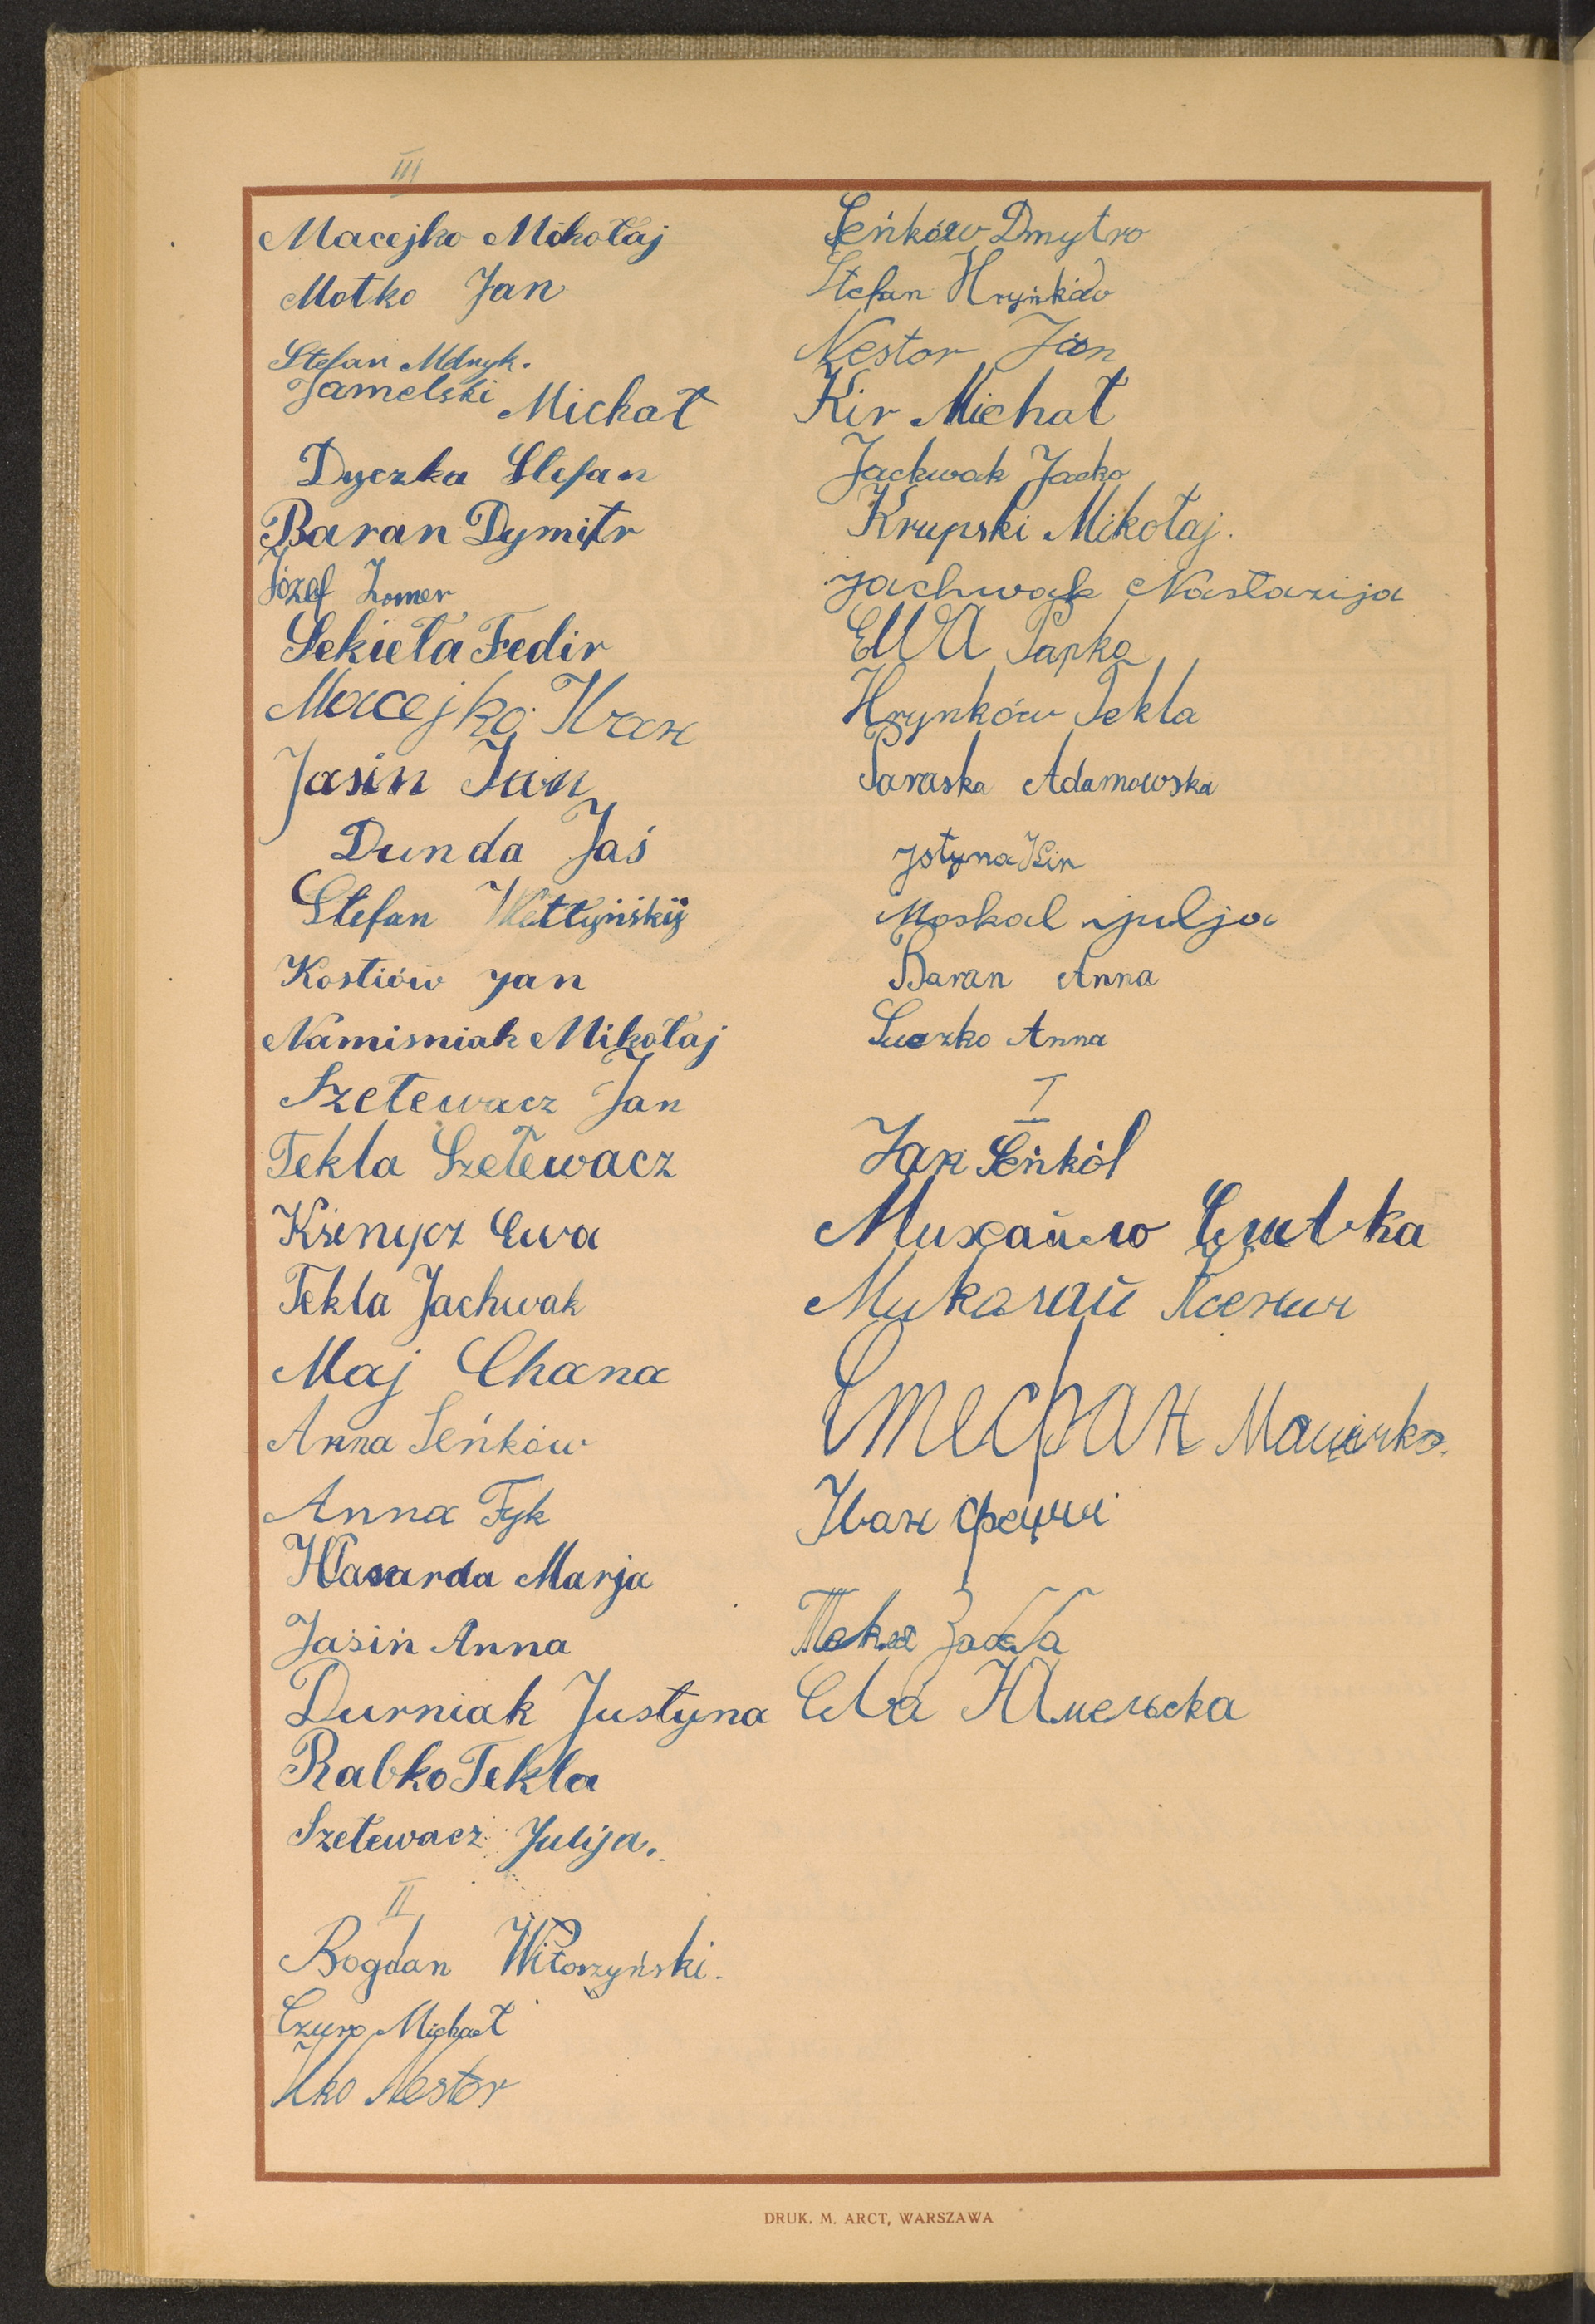 III
Macejko Mikołaj
Motko Jan
Stefan Melnyk.
Jamelski Michał
Dyczka Stefan
Baran Dymitr
Józef Zomer
Sekieła Fedir
Macejko Иван
Jasin Iwan
Dunda Jaś
Stefan
Kostiów Jan
Namisniak Mikołaj
Szetewacz Jan
Tekla Szetewacz
Ksenycz Ewa
Tekla Jachwak
Maj Chana
Anna Seńków
Anna Fyk
Marja
Jasiń Anna
Durniak Justyna
Rabko Tekla
Szetewacz Julija.
II
Bogdan Witoszyński.
Czura Michał
Ilko Nestor
Seńków Dmytro
Stefan Hryńków
Nestor Jan
Kir Michał
Jackwak Jacko
Krupski Mikołaj.
Jachwak Nastazija
EWA Papka
Hrynków Tekla
Paraska Adamowska
Jstyna Kir
Moskal Julja
Baran Anna
Suczko Anna
I
Jan Seńkól
Михайло
Миколай Ксенич
Стефан
Иван
Ева
DRUK. M. ARCT, WARSZAWA